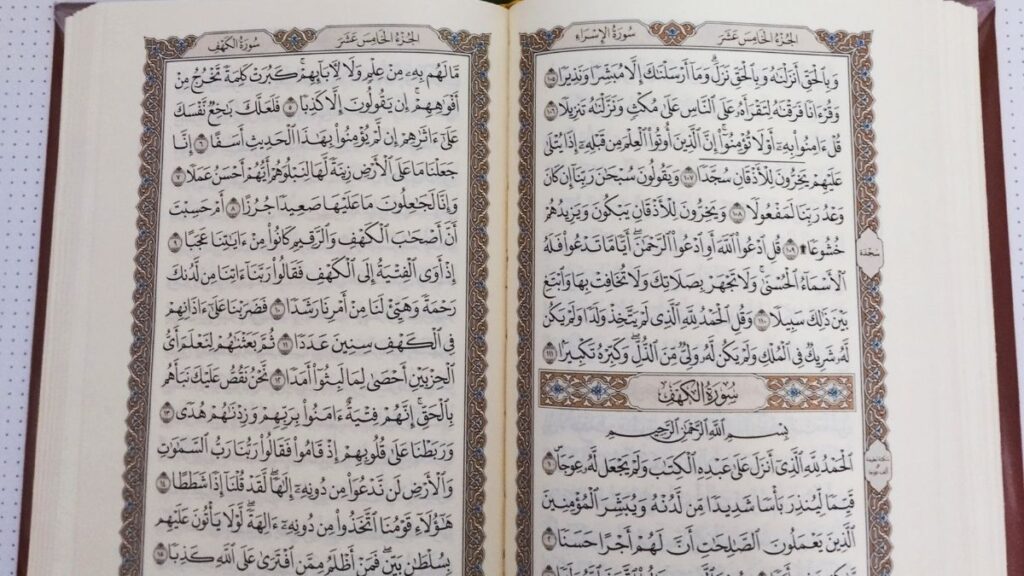 سُورَةُ الإِسْرَاءِ الجُزْءُ الخَامِسَ عَشَرَ
وَبِٱلْحَقِّ أَنزَلْنَٰهُ وَبِٱلْحَقِّ نَزَلَ ۗ وَمَآ أَرْسَلْنَٰكَ إِلَّا مُبَشِّرًا وَنَذِيرًا ١٠٥
وَقُرْءَانًا فَرَقْنَٰهُ لِتَقْرَأَهُۥ عَلَى ٱلنَّاسِ عَلَىٰ مُكْثٍ وَنَزَّلْنَٰهُ تَنزِيلًا ١٠٦
قُلْ ءَامِنُوا۟ بِهِۦٓ أَوْ لَا تُؤْمِنُوٓا۟ ۚ إِنَّ ٱلَّذِينَ أُوتُوا۟ ٱلْعِلْمَ مِن قَبْلِهِۦٓ إِذَا يُتْلَىٰ
عَلَيْهِمْ يَخِرُّونَ لِلْأَذْقَانِ سُجَّدًا ١٠٧ وَيَقُولُونَ سُبْحَٰنَ رَبِّنَآ إِن كَانَ
وَعْدُ رَبِّنَا لَمَفْعُولًا ١٠٨ وَيَخِرُّونَ لِلْأَذْقَانِ يَبْكُونَ وَيَزِيدُهُمْ
خُشُوعًا ۩ ١٠٩ قُلِ ٱدْعُوا۟ ٱللَّهَ أَوِ ٱدْعُوا۟ ٱلرَّحْمَٰنَ ۖ أَيًّا مَّا تَدْعُوا۟ فَلَهُ
ٱلْأَسْمَآءُ ٱلْحُسْنَىٰ ۚ وَلَا تَجْهَرْ بِصَلَاتِكَ وَلَا تُخَافِتْ بِهَا وَٱبْتَغِ
بَيْنَ ذَٰلِكَ سَبِيلًا ١١٠ وَقُلِ ٱلْحَمْدُ لِلَّهِ ٱلَّذِى لَمْ يَتَّخِذْ وَلَدًا وَلَمْ يَكُن
لَّهُۥ شَرِيكٌ فِى ٱلْمُلْكِ وَلَمْ يَكُن لَّهُۥ وَلِىٌّ مِّنَ ٱلذُّلِّ ۖ وَكَبِّرْهُ تَكْبِيرًۢا ١١١
سُورَةُ الكَهْفِ
بِسْمِ ٱللَّهِ ٱلرَّحْمَٰنِ ٱلرَّحِيمِ
ٱلْحَمْدُ لِلَّهِ ٱلَّذِىٓ أَنزَلَ عَلَىٰ عَبْدِهِ ٱلْكِتَٰبَ وَلَمْ يَجْعَل لَّهُۥ عِوَجَا ۜ ١
قَيِّمًا لِّيُنذِرَ بَأْسًا شَدِيدًا مِّن لَّدُنْهُ وَيُبَشِّرَ ٱلْمُؤْمِنِينَ
ٱلَّذِينَ يَعْمَلُونَ ٱلصَّٰلِحَٰتِ أَنَّ لَهُمْ أَجْرًا حَسَنًا ٢
سَجْدَة
سُورَةُ الكَهْفِ الجُزْءُ الخَامِسَ عَشَرَ
مَّا لَهُم بِهِۦ مِنْ عِلْمٍ وَلَا لِءَابَآئِهِمْ ۚ كَبُرَتْ كَلِمَةً تَخْرُجُ مِنْ
أَفْوَٰهِهِمْ ۚ إِن يَقُولُونَ إِلَّا كَذِبًا ٥ فَلَعَلَّكَ بَٰخِعٌ نَّفْسَكَ
عَلَىٰٓ ءَاثَٰرِهِمْ إِن لَّمْ يُؤْمِنُوا۟ بِهَٰذَا ٱلْحَدِيثِ أَسَفًا ٦ إِنَّا
جَعَلْنَا مَا عَلَى ٱلْأَرْضِ زِينَةً لَّهَا لِنَبْلُوَهُمْ أَيُّهُمْ أَحْسَنُ عَمَلًا ٧
وَإِنَّا لَجَٰعِلُونَ مَا عَلَيْهَا صَعِيدًا جُرُزًا ٨ أَمْ حَسِبْتَ
أَنَّ أَصْحَٰبَ ٱلْكَهْفِ وَٱلرَّقِيمِ كَانُوا۟ مِنْ ءَايَٰتِنَا عَجَبًا ٩
إِذْ أَوَى ٱلْفِتْيَةُ إِلَى ٱلْكَهْفِ فَقَالُوا۟ رَبَّنَآ ءَاتِنَا مِن لَّدُنكَ
رَحْمَةً وَهَيِّئْ لَنَا مِنْ أَمْرِنَا رَشَدًا ١٠ فَضَرَبْنَا عَلَىٰٓ ءَاذَانِهِمْ
فِى ٱلْكَهْفِ سِنِينَ عَدَدًا ١١ ثُمَّ بَعَثْنَٰهُمْ لِنَعْلَمَ أَىُّ
ٱلْحِزْبَيْنِ أَحْصَىٰ لِمَا لَبِثُوٓا۟ أَمَدًا ١٢ نَّحْنُ نَقُصُّ عَلَيْكَ نَبَأَهُم
بِٱلْحَقِّ ۚ إِنَّهُمْ فِتْيَةٌ ءَامَنُوا۟ بِرَبِّهِمْ وَزِدْنَٰهُمْ هُدًى ١٣
وَرَبَطْنَا عَلَىٰ قُلُوبِهِمْ إِذْ قَامُوا۟ فَقَالُوا۟ رَبُّنَا رَبُّ ٱلسَّمَٰوَٰتِ
وَٱلْأَرْضِ لَن نَّدْعُوَا۟ مِن دُونِهِۦٓ إِلَٰهًا ۖ لَّقَدْ قُلْنَآ إِذًا شَطَطًا ١٤
هَٰٓؤُلَآءِ قَوْمُنَا ٱتَّخَذُوا۟ مِن دُونِهِۦٓ ءَالِهَةً ۖ لَّوْلَا يَأْتُونَ عَلَيْهِم
بِسُلْطَٰنٍۭ بَيِّنٍ ۖ فَمَنْ أَظْلَمُ مِمَّنِ ٱفْتَرَىٰ عَلَى ٱللَّهِ كَذِبًا ١٥